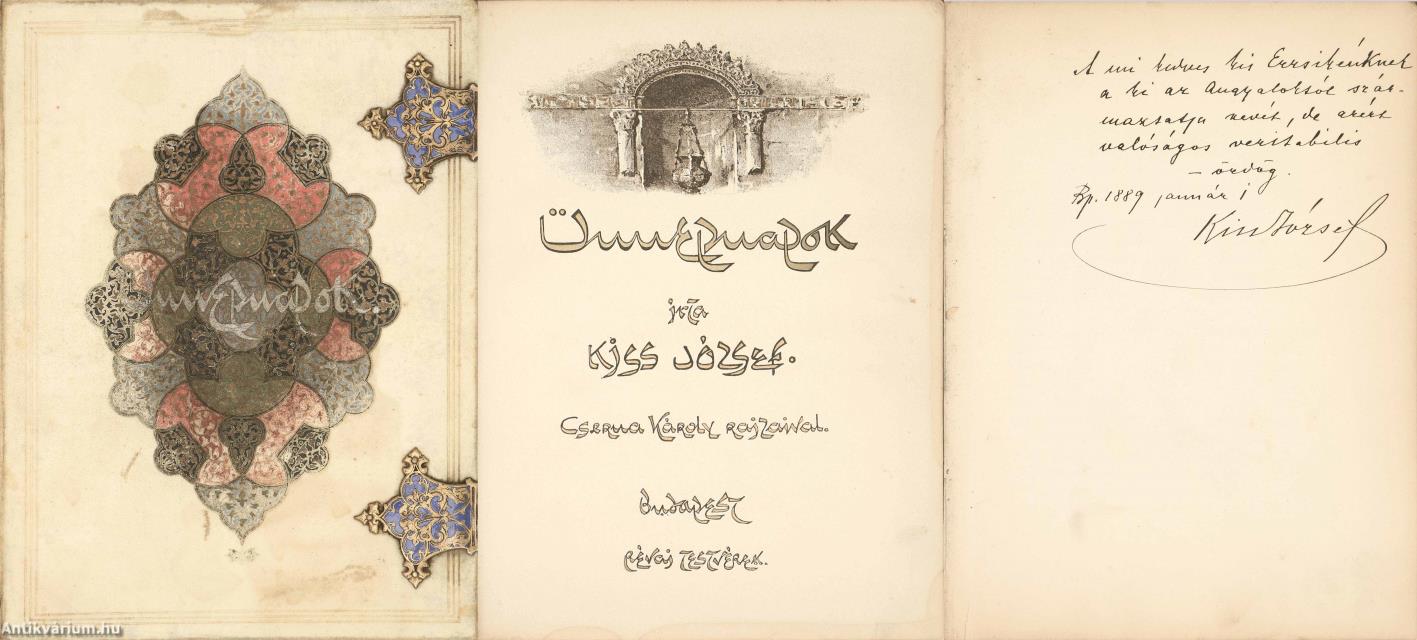 Ünnepnapok
Ünnepnapok
írta
Kiss József.
Cserna Károly rajzaival.
Budapest
Révai Testvérek.
A mi kedves kis Erzsikénknek
a ki az Angyaloktól szár-
maztatja nevét, de azért
valóságos veritabilis
– ördög.
Bp. 1889 január 1
Kiss József
Antikvárium.hu